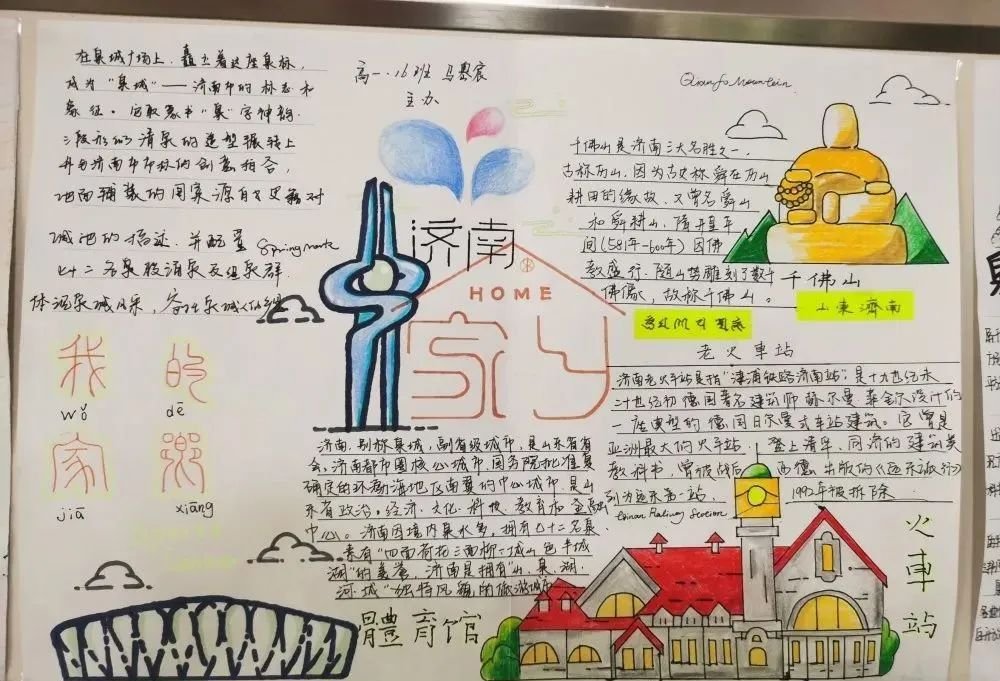 在泉城广场上，矗立着这座泉标，
成为“泉城”——济南市的标志和
象征。它取篆书“泉”字神韵，
三股形的清泉的造型振转上
并与济南市市标的创意相合，
地面铺装的图案源自古史籍对
城池的描述，并配置
七十二名泉股涌泉及组泉群，
体 泉城风采，
高一·16班 马
主办
济南
HOME
家
Qianfo Mountain.
千佛山是济南三大名胜之一，
古称历山，因为古史称舜在历山
耕田的缘故，又曾名舜山
和舜耕山，隋开皇年
间(581年-600年)因佛
教盛行，随山势雕刻了数千
佛像，故称千佛山。
千佛山
山东濟南
我 的
wǒ dē
家 鄉
jiā xiāng
济南，别称泉城，副省级城市，是山东省省
会、济南都市圈核心城市，国务院批准复
确定的环渤海地区南翼的中心城市，是山
东省政治、经济、文化、科技、教育和金融
中心。济南因境内泉水多，拥有七十二名泉，
素有“四面荷花三面柳一城山色半城
湖”的美誉，济南是拥有“山、泉、湖、
河、城”独特风貌的旅游城市
體育馆
老火車站
济南老火车站是指“津浦铁路济南站”，是十九世纪末
二十世纪初德国著名建筑师赫尔曼·菲舍尔设计的
一座典型的德国日尔曼式车站建筑。它曾是
亚洲最大的火车站，登上清华、同济的建筑类
教科书，曾被战后西德出版的《远东旅行》
列为远东第一站。
1992年被拆除
火
車
站